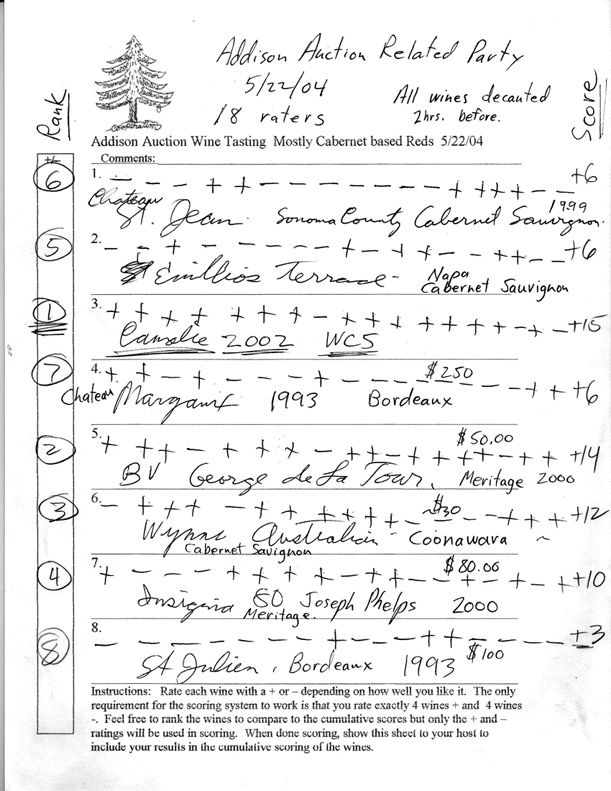 Addison Auction Related Party
5/22/04 All wines decanted
18 raters 2hrs. before.
Rank Score
Addison Auction Wine Tasting Mostly Cabernet based Reds 5/22/04
+/- Comments:
6 1. — — — + + — — — — — — — + + + + — — +6
Chateau St. Jean Sonoma County Cabernet Sauvignon. 1999
5 2. — — + — — — — — — + — + + — — + + — +6
Emillios Terrace - Napa Cabernet Sauvignon
1 3. + + + + + + + — + + + + + + + + — — +15
Camalie 2002 WCS
7 4. + + — + — — — + — — — — — — — + + +6
$250
Chateau Margaux 1993 Bordeaux
2 5. + + + — + + + — + + — + + + + — + + +14
$50.00
BV George de La Tour, Meritage 2000
3 6. — + + + — + + + + + + — — — + + + +12
$30
Wynns Australian - Coonawara ~
Cabernet Sauvignon
4 7. + — — — + + + + — + + — — + — + — + +10
$80.00
Insignia 80 Joseph Phelps 2000
Meritage.
8 8. — — — — — — — + — — + + — — — — — +3
$100
St Julien, Bordeaux 1993
Instructions: Rate each wine with a + or – depending on how well you like it. The only
requirement for the scoring system to work is that you rate exactly 4 wines + and 4 wines
-. Feel free to rank the wines to compare to the cumulative scores but only the + and –
ratings will be used in scoring. When done scoring, show this sheet to your host to
include your results in the cumulative scoring of the wines.